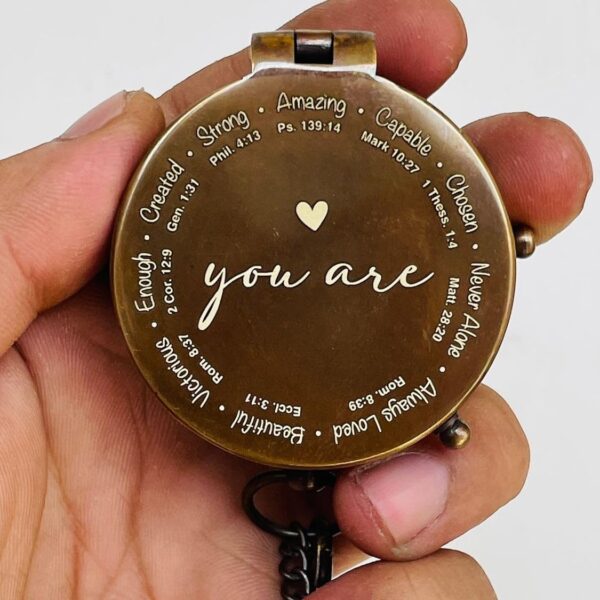 you are
Amazing
Ps. 139:14
Capable
Mark 10:27
Chosen
1 Thess. 1:4
Never Alone
Matt. 28:20
Always Loved
Rom. 8:39
Beautiful
Eccl. 3:11
Victorious
Rom. 8:37
Enough
2 Cor. 12:9
Created
Gen. 1:31
Strong
Phil. 4:13